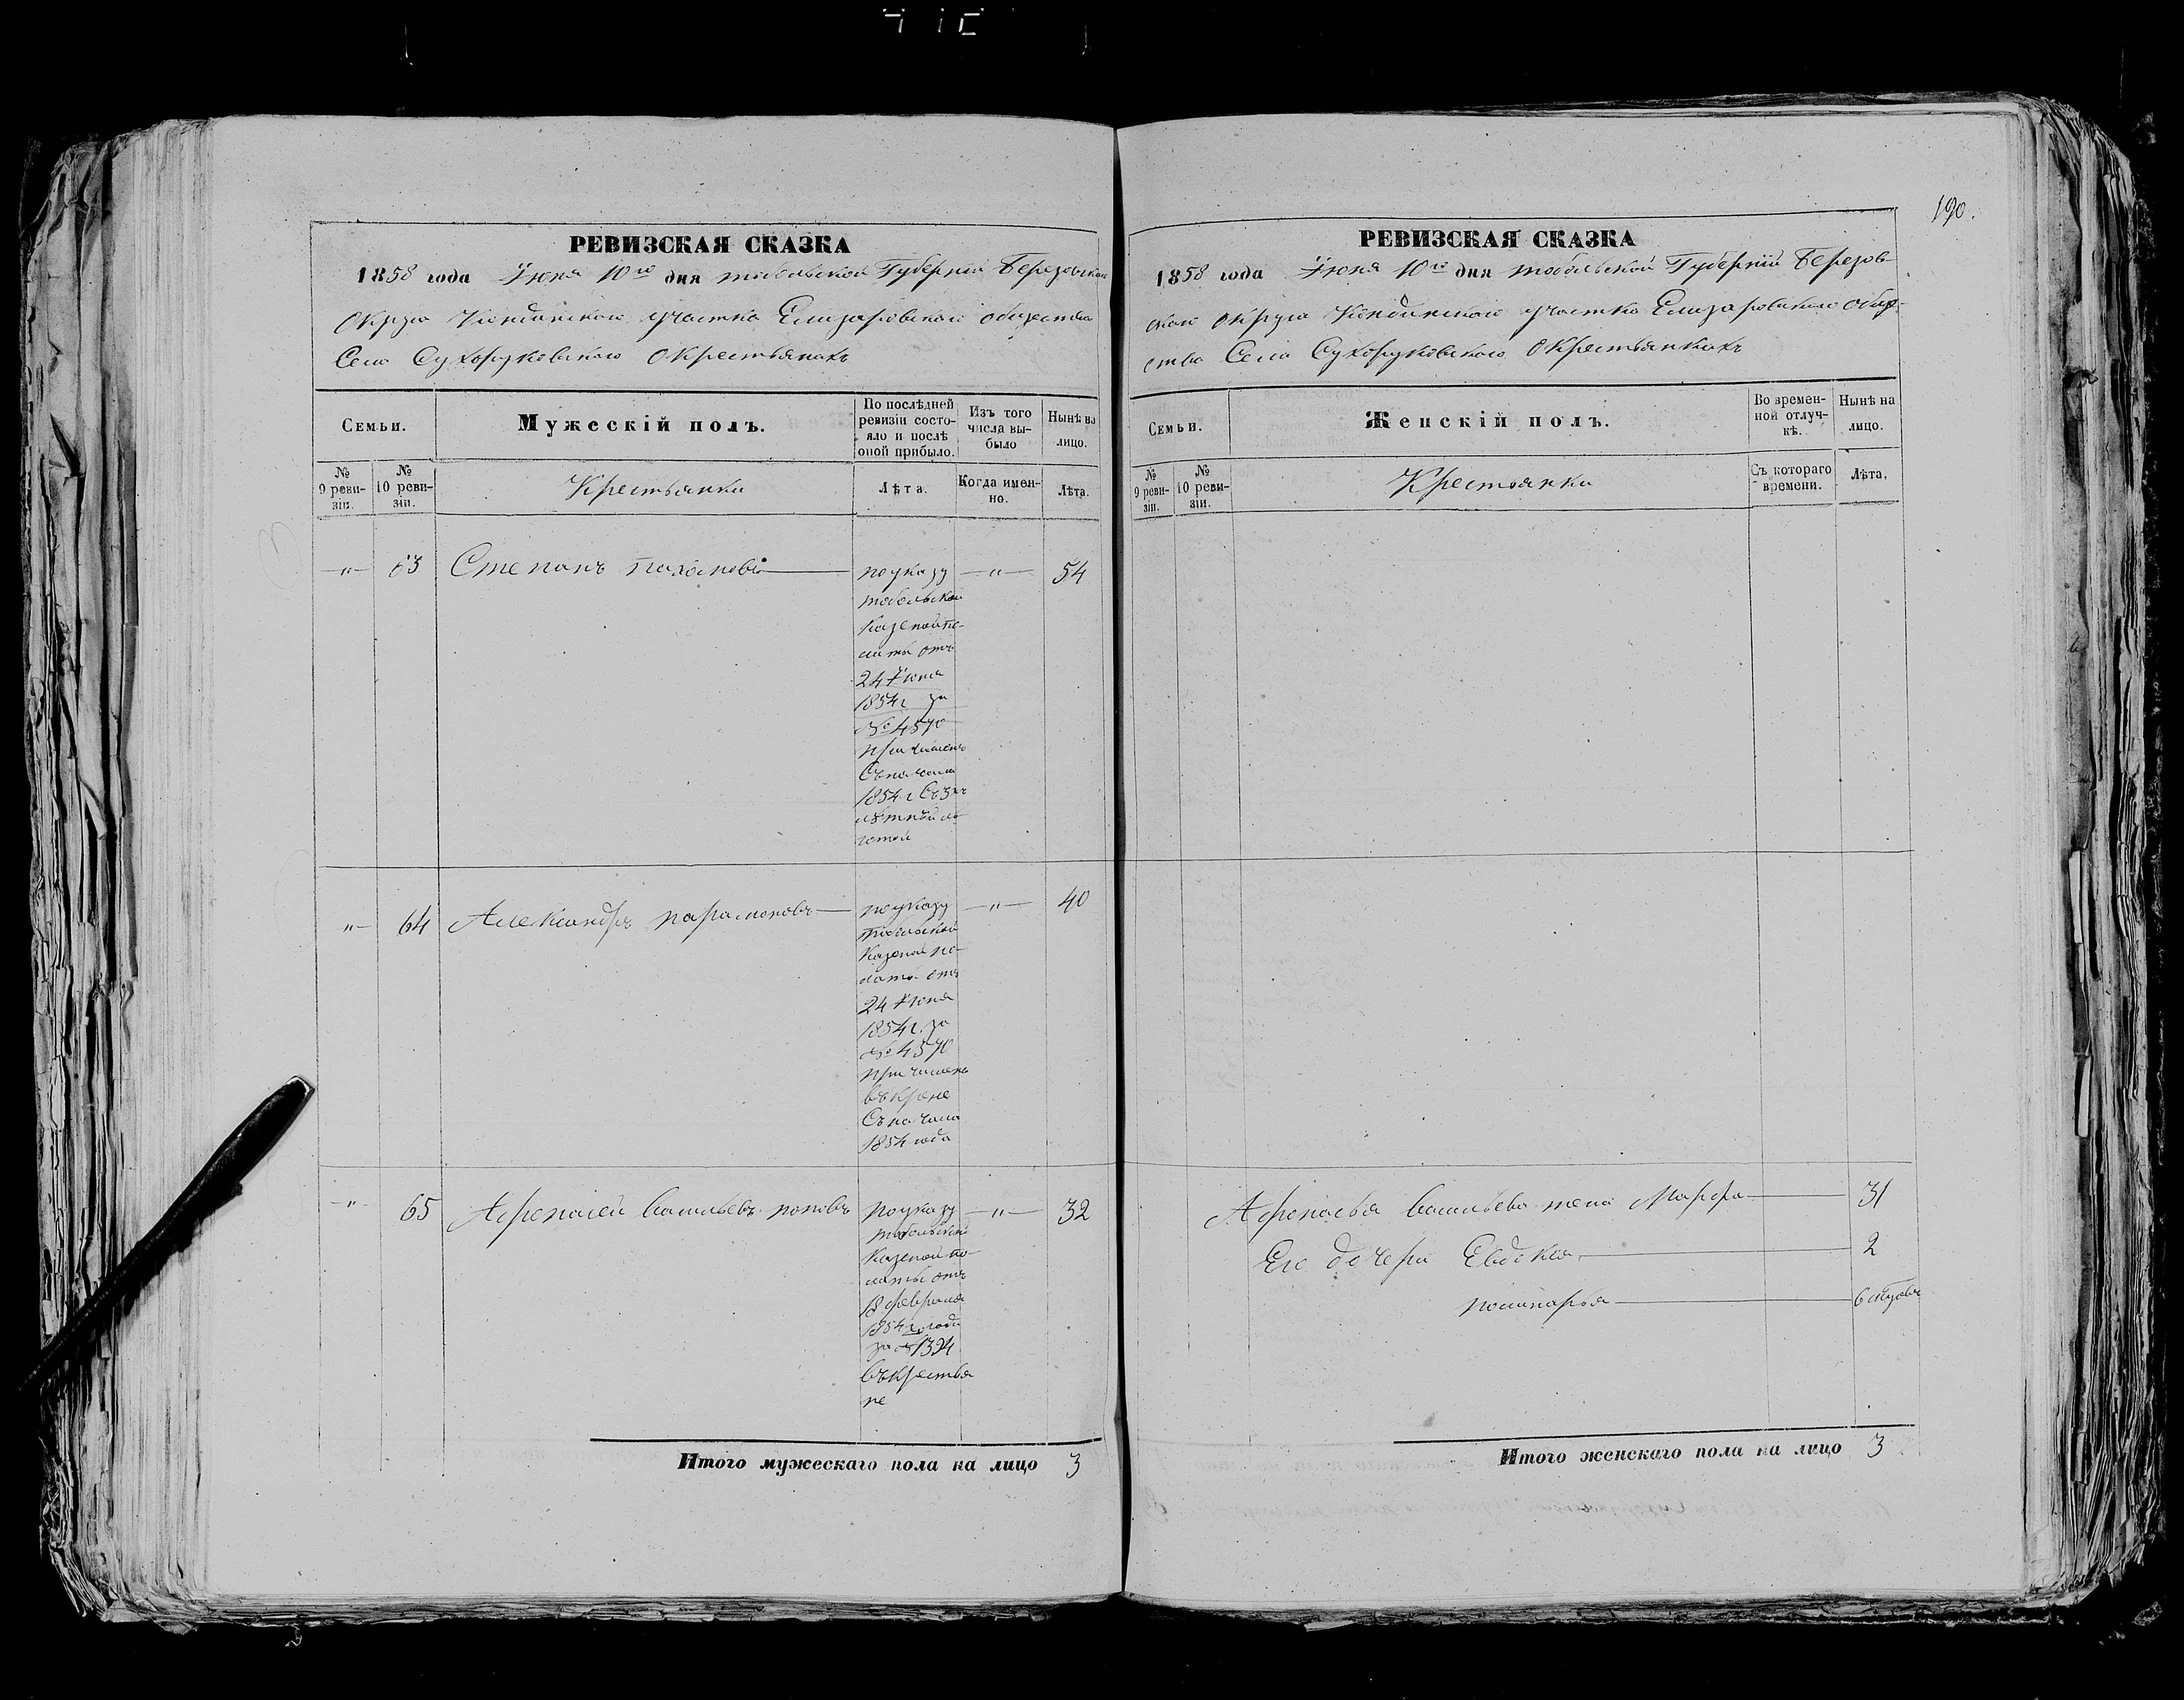 190.
РЕВИЗСКАЯ СКАЗКА
1858 года Июня 10го дня тобольской Губерніи Березовскаго
Округа Кондинскаго участка Елизаровскаго общества
Села Сухоруковскаго О Крестьянахъ
Семьи.
Мужескій полъ.
По послѣдней
ревизіи состо-
яло и послѣ
оной прибыло.
Изъ того
числа вы-
было
Нынѣ на
лицо.
№
9 реви-
зіи.
№
10 реви-
зіи.
Крестьянки
Лѣта.
Когда имен-
но.
Лѣта.
—"— 63 Степанъ — " — 54
по указу
тобольской
Казеной па-
латы отъ
24 Июня
1854 г за
№ 4570
причисленъ
Съ начала
1854 г Съ 3хъ
лѣтней ль-
готой
"— 64 Александръ парамоновъ — " — 40
по указу
тобольской
Казеной па-
латы отъ
24 Июня
1854 г. за
№ 4570
причисленъ
въ кресне
Съ начала
1854 года
—"— 65 Афонасей Васильевъ поповъ — " — 32
по указу
тобольской
Казеной па-
латы отъ
18 февраля
1854 го года
за № 1394
въ крестья
не
Итого мужескаго пола на лицо 3
РЕВИЗСКАЯ СКАЗКА
1858 года Июня 10го дня тобольской Губерніи Березов-
скаго округа Кондинскаго участка Елизаровскаго обще-
ства Села Сухоруковскаго О Крестьянкахъ
Семьи.
Женскій полъ.
Во времен-
ной отлуч-
кѣ.
Нынѣ на
лицо.
№
9 реви-
зіи.
№
10 реви-
зіи.
Крестьянки
Съ котораго
времени.
Лѣта.
Афонасья Васильева жена Марфа 31
Его дочери Евдокия 2
6
Итого женскаго пола на лицо 3